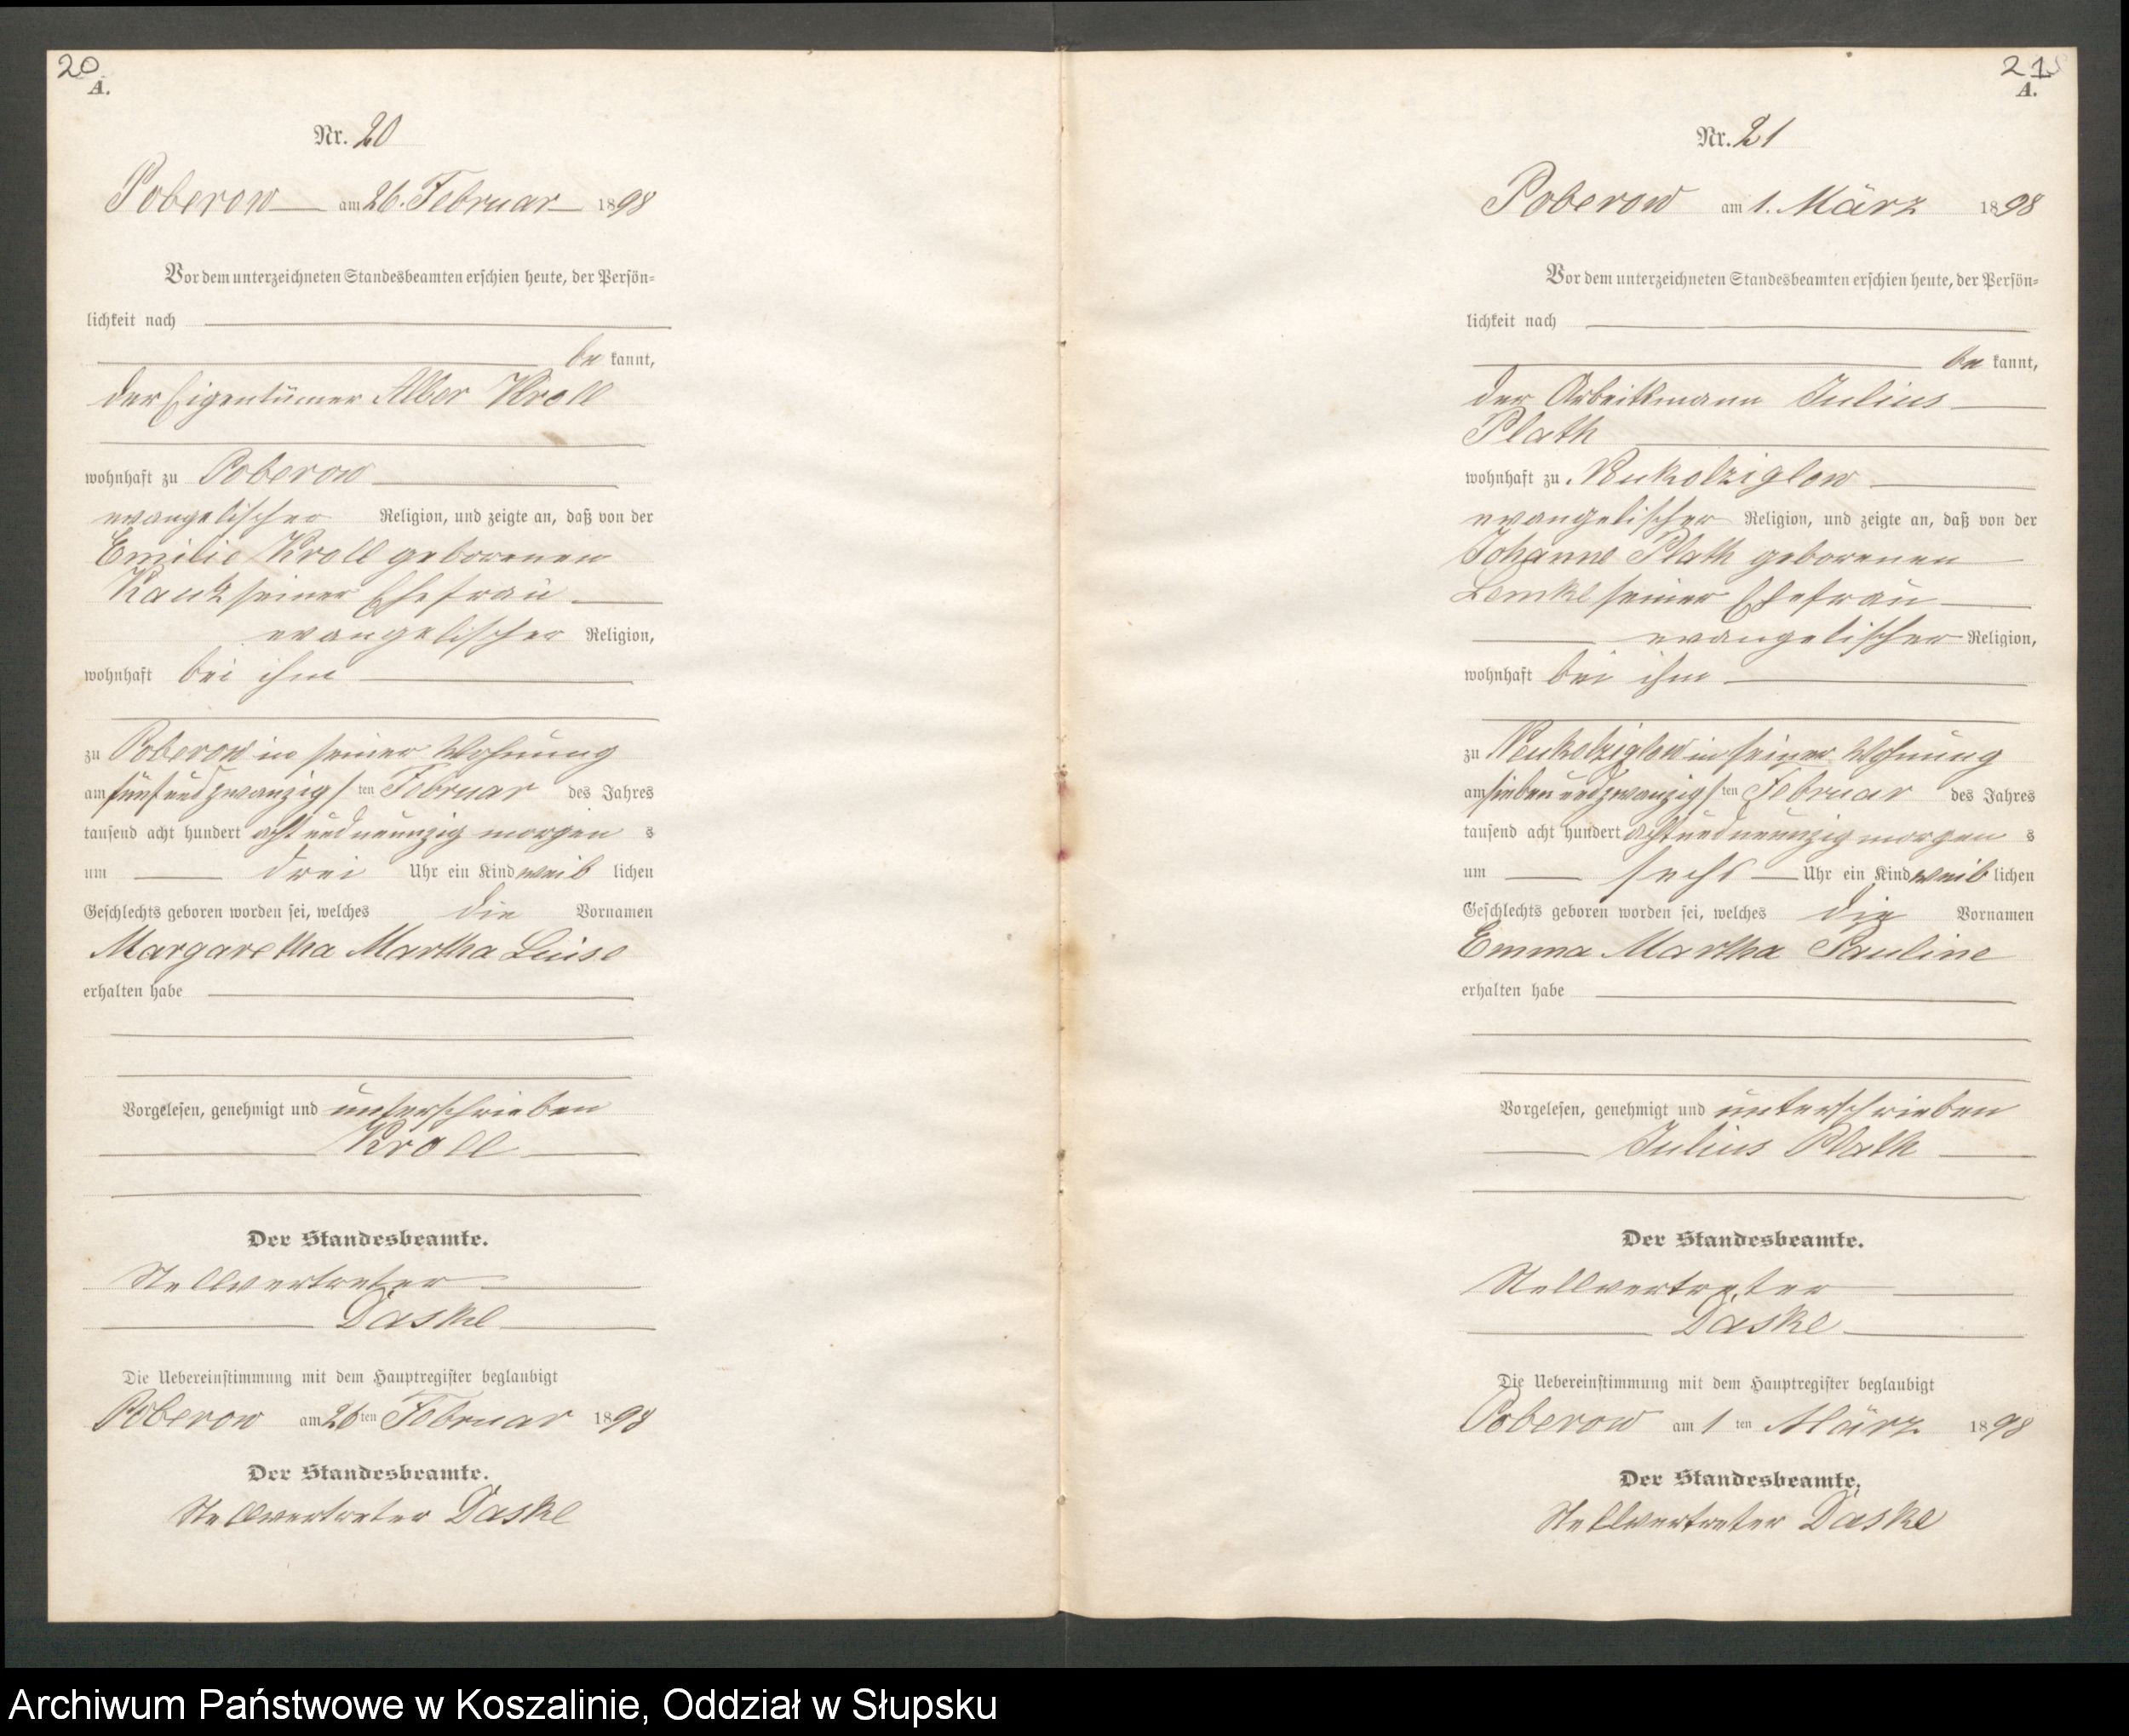 20
A.
Nr. 20
Poberow am 26. Februar 1898
Vor dem unterzeichneten Standesbeamten erschien heute, der Persön-
lichkeit nach
be kannt,
der Eigentümer Alber Kroll
wohnhaft zu Poberow
evangelischer Religion, und zeigte an, daß von der
Emilie Kroll geborenen
Kautz seiner Ehefrau
evangelischer Religion,
wohnhaft bei ihm
zu Poberow in seiner Wohnung
am fünf und zwanzigsten Februar des Jahres
tausend acht hundert acht und neunzig morgen s
um drei Uhr ein Kind weib lichen
Geschlechts geboren worden sei, welches die Vornamen
Margaretha Martha Luise
erhalten habe
Vorgelesen, genehmigt und unterschrieben
Kroll
Der Standesbeamte.
Stellvertreter
Daske
Die Uebereinstimmung mit dem Hauptregister beglaubigt
Poberow am 26 ten Februar 1898
Der Standesbeamte.
Stellvertreter Daske
21
A.
Nr. 21
Poberow am 1. März 1898
Vor dem unterzeichneten Standesbeamten erschien heute, der Persön-
lichkeit nach
be kannt,
der Arbeitsmann Julius
Plath
wohnhaft zu Neukolziglow
evangelischer Religion, und zeigte an, daß von der
Johanne Plath geborenen
Lemke seiner Ehefrau
evangelischer Religion,
wohnhaft bei ihm
zu Neukolziglow in seiner Wohnung
am sieben und zwanzigsten Februar des Jahres
tausend acht hundert acht und neunzig morgen s
um sechs Uhr ein Kind weib lichen
Geschlechts geboren worden sei, welches die Vornamen
Emma Martha Pauline
erhalten habe
Vorgelesen, genehmigt und unterschrieben
Julius Plath
Der Standesbeamte.
Stellvertreter
Daske
Die Uebereinstimmung mit dem Hauptregister beglaubigt
Poberow am 1 ten März 1898
Der Standesbeamte.
Stellvertreter Daske
Archiwum Państwowe w Koszalinie, Oddział w Słupsku